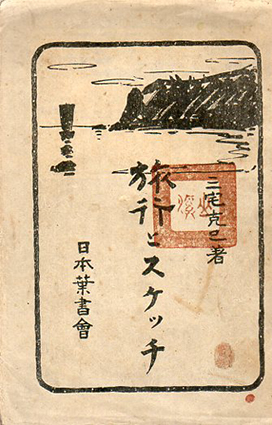 三宅克己著
旅行とスケッチ
日本葉書會